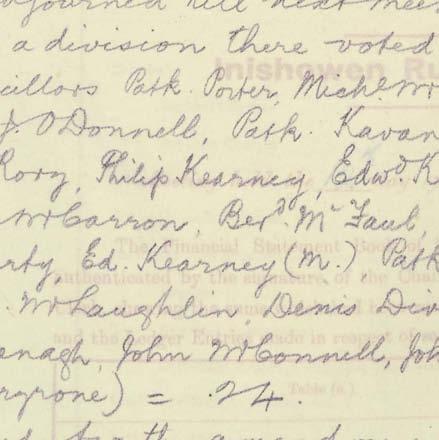 adjourned till next mee
a division there voted
cillors Patk. Porter, Michl. Mc
J. O'Donnell, Patk. Kavan
Rory, Philip Kearney, Edwd. K
McCarron, Berd. Mc Faul,
erty, Ed. Kearney (M.) Patk
McLaughlin, Denis Div
enagh, John McConnell, Joh
ryrone) = 24.
Inishowen Ru
The Financial Statement Book of
uthenticated by the signature of the Chai
and the Ledger Entries made in respect of
Table (a.)